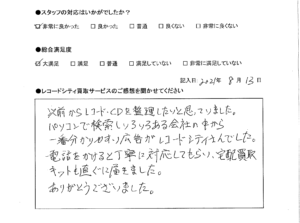 ●スタッフの対応はいかがでしたか？
☑非常に良かった □良かった □普通 □良くない □非常に良くない
●総合満足度
☑大満足 □満足 □普通 □満足していない □非常に満足していない
記入日 2021年 8月 13日
●レコードシティ買取サービスのご感想を聞かせてください
以前からレコード・CDを整理したいと思っていました。
パソコンで検索しいろいろある会社の中から
一番分かりやすい広告がレコードシティさんでした。
電話をかけると丁寧に対応してもらい、宅配買取
キットも直ぐに届きました。
ありがとうございました。